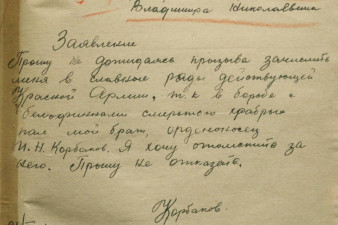 Владимира Николаевича
Заявление
Прошу не дожидаясь призыва зачислить
меня в славные ряды действующей
Красной Армии, т.к в борьбе с
белофиннами смертью храбрых
пал мой брат, орденоносец
И.Н. Корбаков. Я хочу отомстить за
него. Прошу не отказать.
Корбаков.